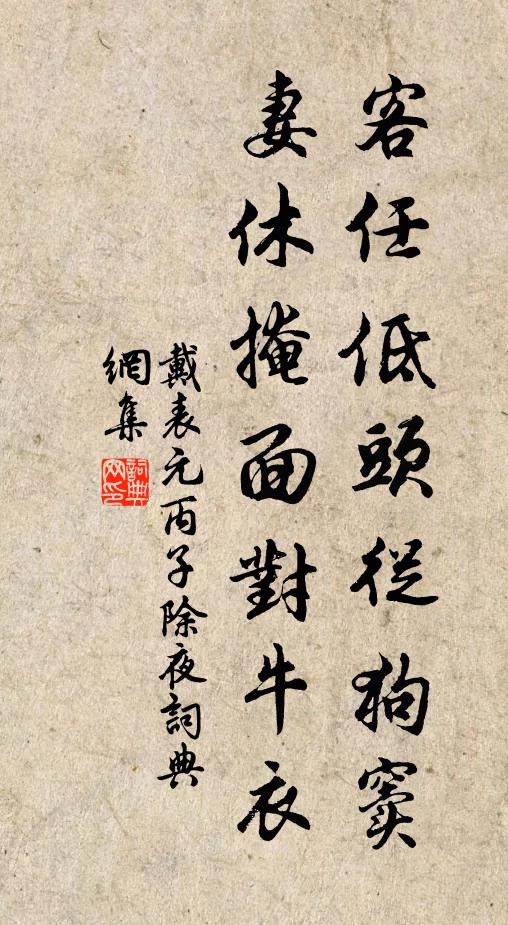 客任低頭從狗竇
妻休掩面對牛衣
戴表元丙子除夜詞典
網集
詞典網印